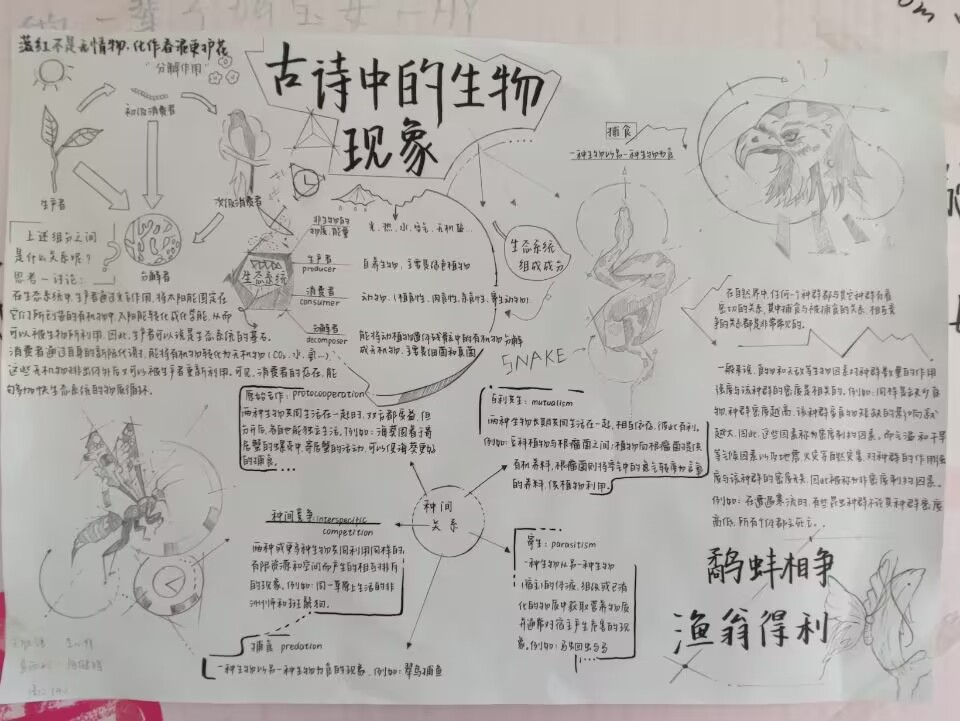 落红不是无情物,化作春泥更护花
"分解作用"
古诗中的生物
现象
初级消费者
生产者
次级消费者
分解者
上述组分之间
是什么关系呢?
思考—讨论:
在生态系统中,生产者通过光合作用,将太阳能固定在
它们所制造的有机物中,太阳能转化成化学能,从而
可以被生物所利用,因此,生产者可以说是生态系统的基石。
消费者通过自身的新陈代谢,能将有机物转化为无机物(CO₂、水、氨...),
这些无机物排出体外后又可以被生产者重新利用。可见,消费者的存在,能
够加快生态系统的物质循环。
生态系统
非生物的
物质、能量
光、热、水、空气、无机盐...
生产者
producer
自养生物,主要是绿色植物
消费者
consumer
动物,(植食性、肉食性、杂食性、寄生动物)
分解者
decomposer
能将动植物遗体残骸中的有机物分解
成无机物,主要是细菌和真菌
生态系统
组成成分
捕食
一种生物以另一种生物为食
SNAKE
在自然界中,任何一个种群都与其它种群有着
密切的关系,其中捕食与被捕食的关系、相互竞
争的关系都是非常常见的。
一般来说,食物和天敌等生物因素对种群数量的作用
强度与该种群的密度是相关的。例如:同样是缺少食
物,种群密度越高,该种群受食物短缺的影响就
越大,因此,这些因素称为密度制约因素。而气温和干旱
等气候因素以及地震、火灾等自然灾害,对种群的作用强
度与该种群的密度无关,因此被称为非密度制约因素。
例如:在遭遇寒流时,有些昆虫种群不论其种群密度
高低,所有个体都会死亡。
原始合作:protocooperation
两种生物共同生活在一起时,双方都受益,但
分开后,各自也能独立生活。例如:海葵固着于寄
居蟹的螺壳中,寄居蟹的活动,可以使海葵更好
的捕食。
互利共生:mutualism
两种生物长期共同生活在一起,相互依存,彼此有利。
例如:豆科植物与根瘤菌之间:植物向根瘤菌提供
有机养料,根瘤菌则将空气中的氮气转变为含氮
的养料,供植物利用。
种间
关系
种间竞争:interspecific
competition
两种或更多种生物共同利用同样的
有限资源和空间而产生的相互排斥
的现象。例如:同一草原上生活的非
洲狮和斑鬣狗。
寄生:parasitism
一种生物从另一种生物
(宿主)的体液、组织或已消
化的物质中获取营养物质
并通常对宿主产生危害的现
象。例如:马蛔虫与马
捕食 predation
一种生物以另一种生物为食的现象,例如:翠鸟捕鱼
鹬蚌相争
渔翁得利